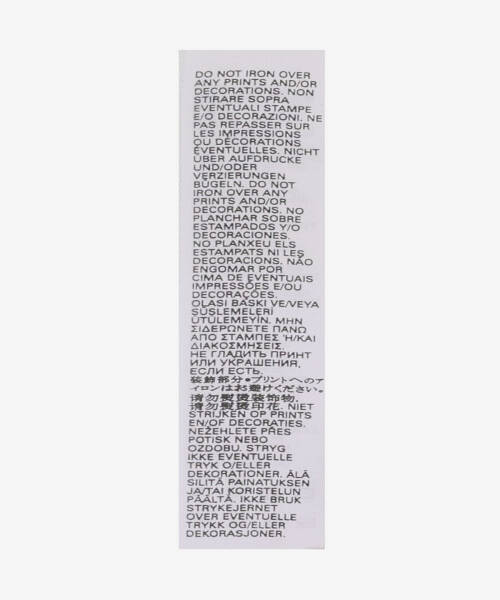 DO NOT IRON OVER
ANY PRINTS AND/OR
DECORATIONS. NON
STIRARE SOPRA
EVENTUALI STAMPE
E/O DECORAZIONI. NE
PAS REPASSER SUR
LES IMPRESSIONS
OU DÉCORATIONS
ÉVENTUELLES. NICHT
ÜBER AUFDRUCKE
UND/ODER
VERZIERUNGEN
BÜGELN. DO NOT
IRON OVER ANY
PRINTS AND/OR
DECORATIONS. NO
PLANCHAR SOBRE
ESTAMPADOS Y/O
DECORACIONES.
NO PLANXEU ELS
ESTAMPATS NI LES
DECORACIONS. NÃO
ENGOMAR POR
CIMA DE EVENTUAIS
IMPRESSÕES E/OU
DECORAÇÕES.
OLASI BASKI VE/VEYA
SÜSLEMELERİ
ÜTÜLEMEYİN. ΜΗΝ
ΣΙΔΕΡΩΝΕΤΕ ΠΑΝΩ
ΑΠΟ ΣΤΑΜΠΕΣ Ή/ΚΑΙ
ΔΙΑΚΟΣΜΗΣΕΙΣ.
НЕ ГЛАДИТЬ ПРИНТ
ИЛИ УКРАШЕНИЯ,
ЕСЛИ ЕСТЬ.
装飾部分•プリントへのア
イロンはお避けください。
请勿熨烫装饰物。
请勿熨烫印花. NIET
STRIJKEN OP PRINTS
EN/OF DECORATIES.
NEŽEHLETE PŘES
POTISK NEBO
OZDOBU. STRYG
IKKE EVENTUELLE
TRYK O/ELLER
DEKORATIONER. ÄLÄ
SILITÄ PAINATUKSEN
JA/TAI KORISTELUN
PÄÄLTÄ. IKKE BRUK
STRYKEJERNET
OVER EVENTUELLE
TRYKK OG/ELLER
DEKORASJONER.